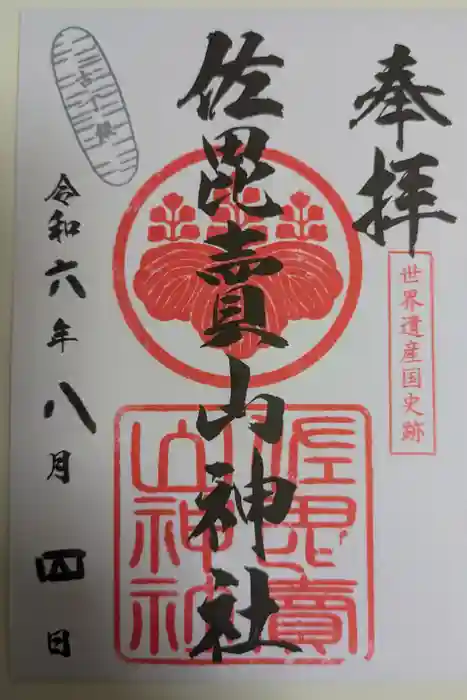 奉拝
世界遺産国史跡
佐毘売山神社
佐毘売山神社
令和六年八月四日